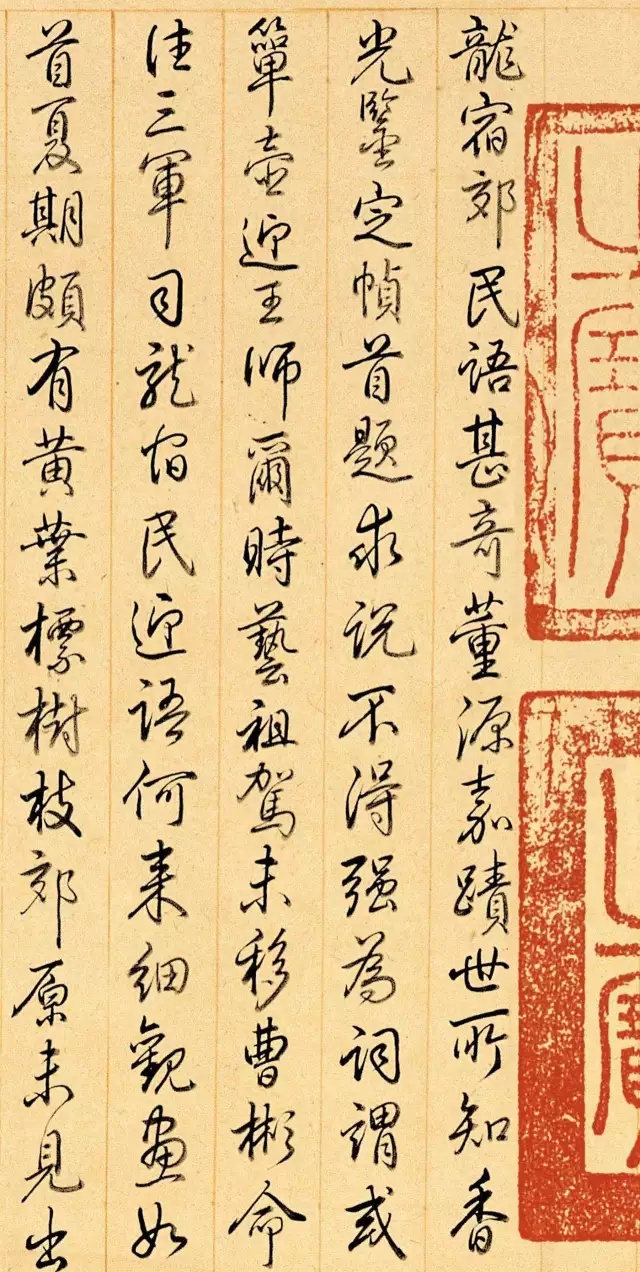 龍宿郊民語甚奇董源嘉蹟世所知香
光鑒定幀首題求説不得强為詞謂或
簞壺迎王師爾時藝祖駕未移曹彬命
往三軍司龍宿民迎語何來細觀畫如
首夏期頗有黃葉標樹枝郊原未見出